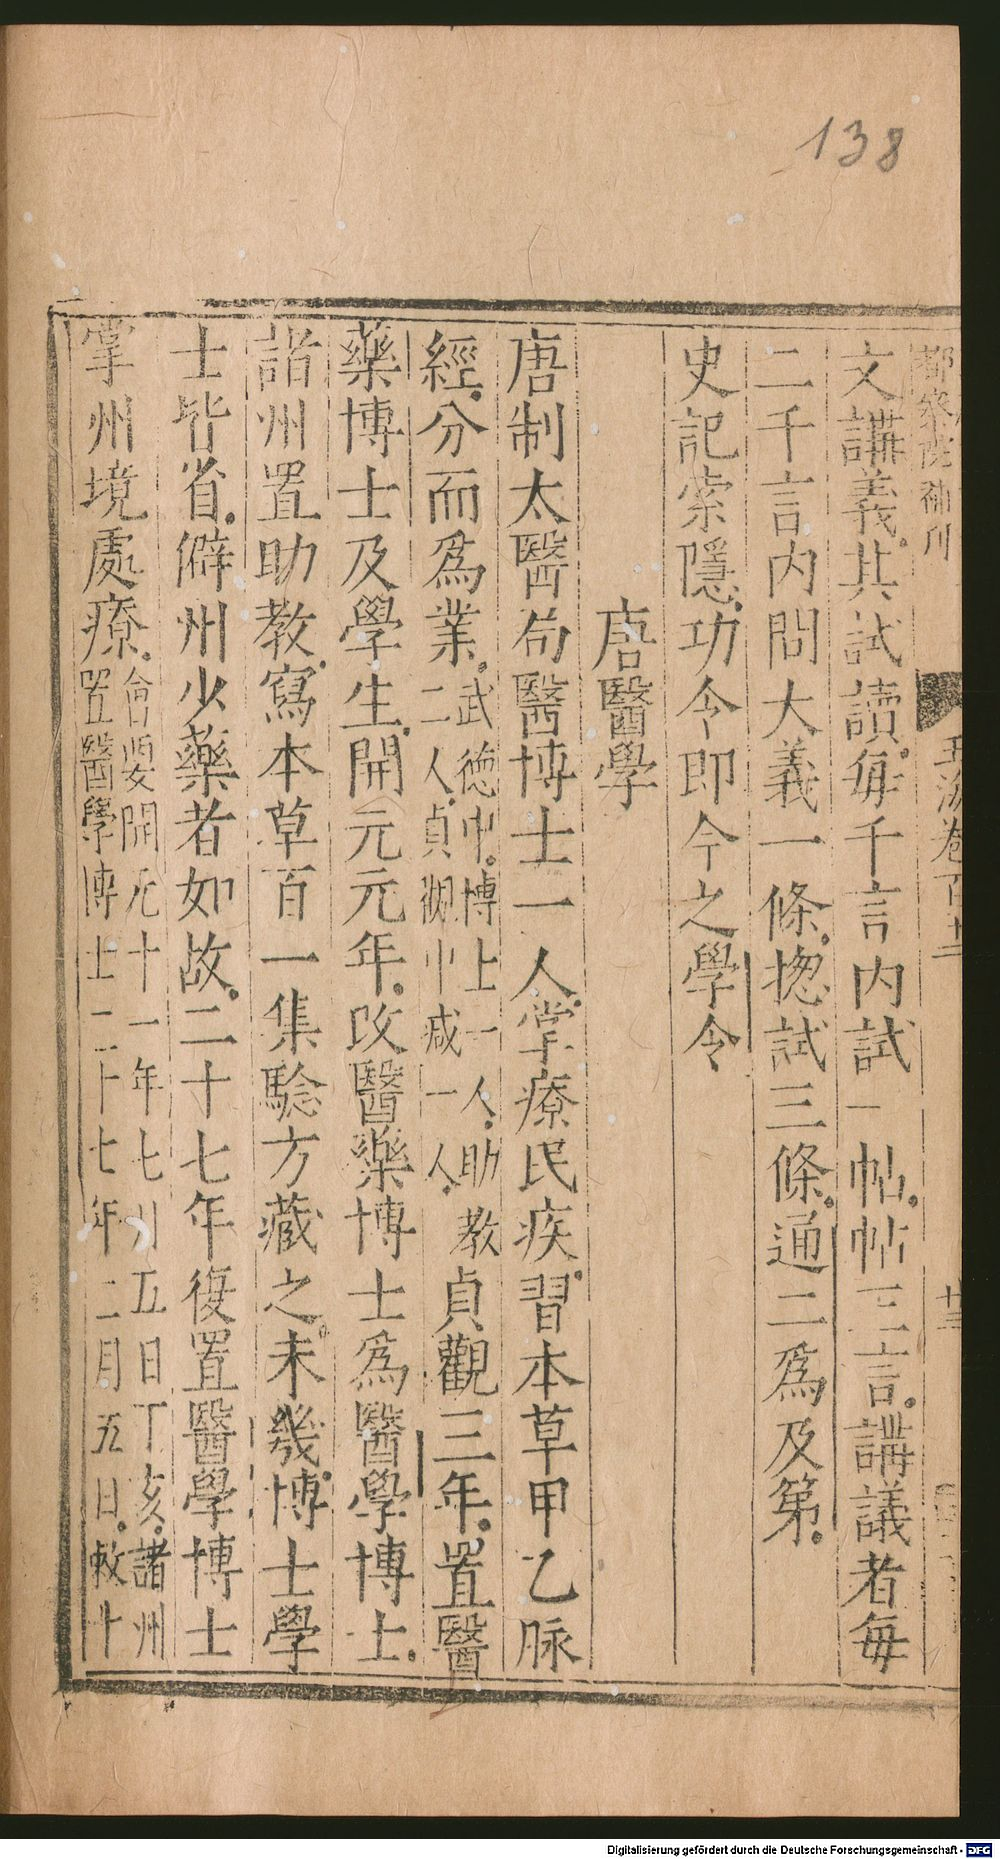 138
都察院補刊
玉海卷百十二
十三
文講義其試讀每千言内試一帖帖三言講議者每
二千言内問大義一條捴試三條通二爲及第
史記索隱功令即今之學令
唐醫學
唐制太醫局醫博士一人掌療民疾習本草甲乙脉
經分而爲業武德中博士一人助教
二人貞觀中减一人貞觀三年置醫
藥博士及學生開元元年改醫藥博士爲醫學博士
諸州置助教寫本草百一集驗方藏之未幾博士學
士皆省僻州少藥者如故二十七年復置醫學博士
掌州境處療會要開元十一年七月五日丁亥諸州
置醫學博士二十七年二月五日敕十
Digitalisierung gefördert durch die Deutsche Forschungsgemeinschaft - DFG